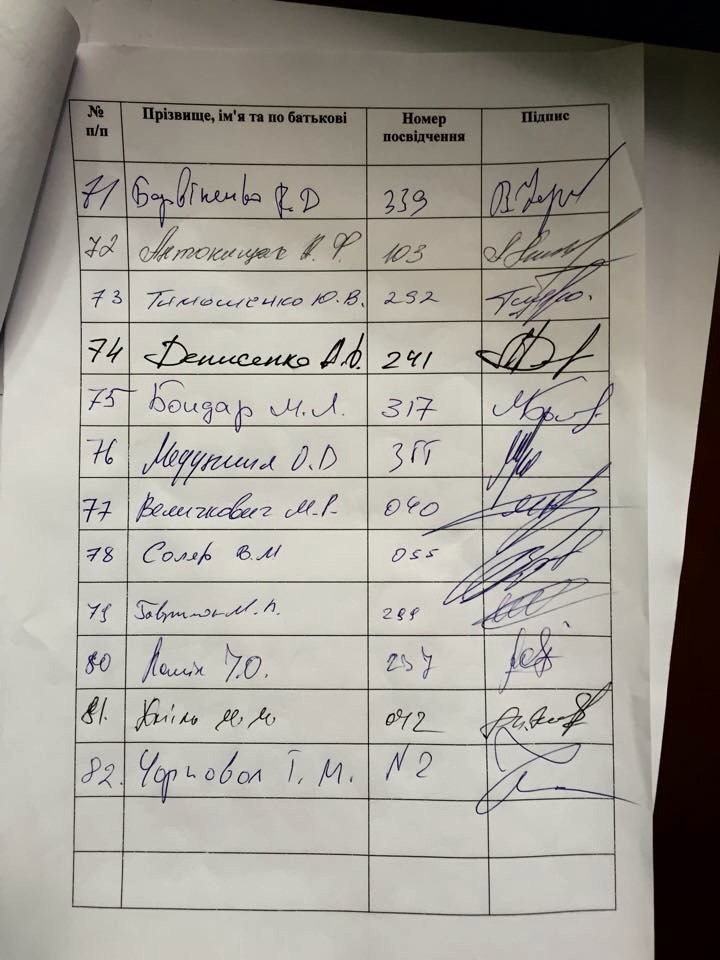 № п/п Прізвище, ім'я та по батькові Номер посвідчення Підпис
71 Барвіненко В.Д 339
72 Антонищак А. Ф. 103
73 Тимошенко Ю.В. 292
74 Денисенко А.С. 241
75 Бондар М.Л. 317
76 О.Д
77 Величкович М.Р. 040
78 Соляр В.М 055
79 М.П. 299
80 І.О. 237
81. М.М 042
82. Чорновол Т.М. N2